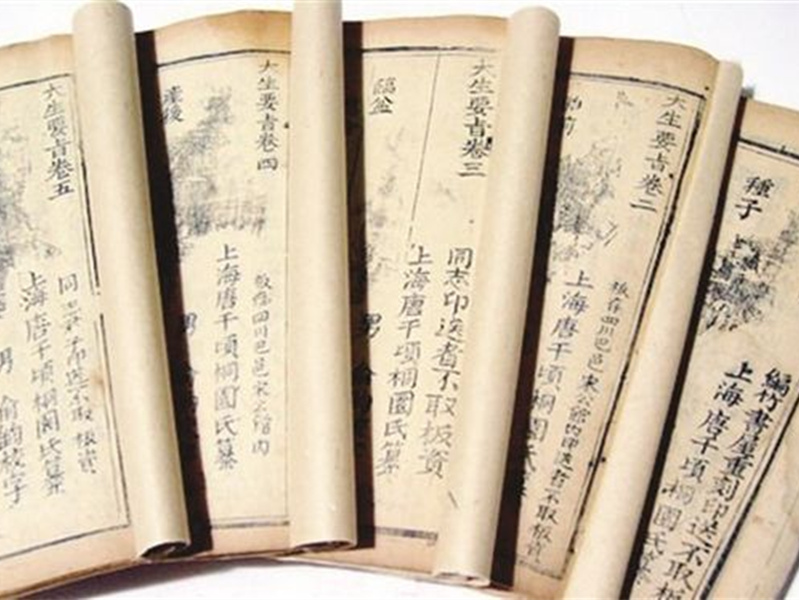 種子
編竹書屋重刻印送不取板
上海唐千頃桐園氏纂
大生要旨卷二
板存四川巴邑宋公館內印送者不取板資
前
上海唐千頃桐園氏
大生要旨卷三
同志印送者不取板資
臨盆
上海唐千頃桐園氏纂
男
大生要旨卷四
板存四川巴邑宋公館內
產後
上海唐千頃桐園氏纂
男
大生要旨卷五
印送不取板資
上海唐千頃桐園氏纂
男
校字